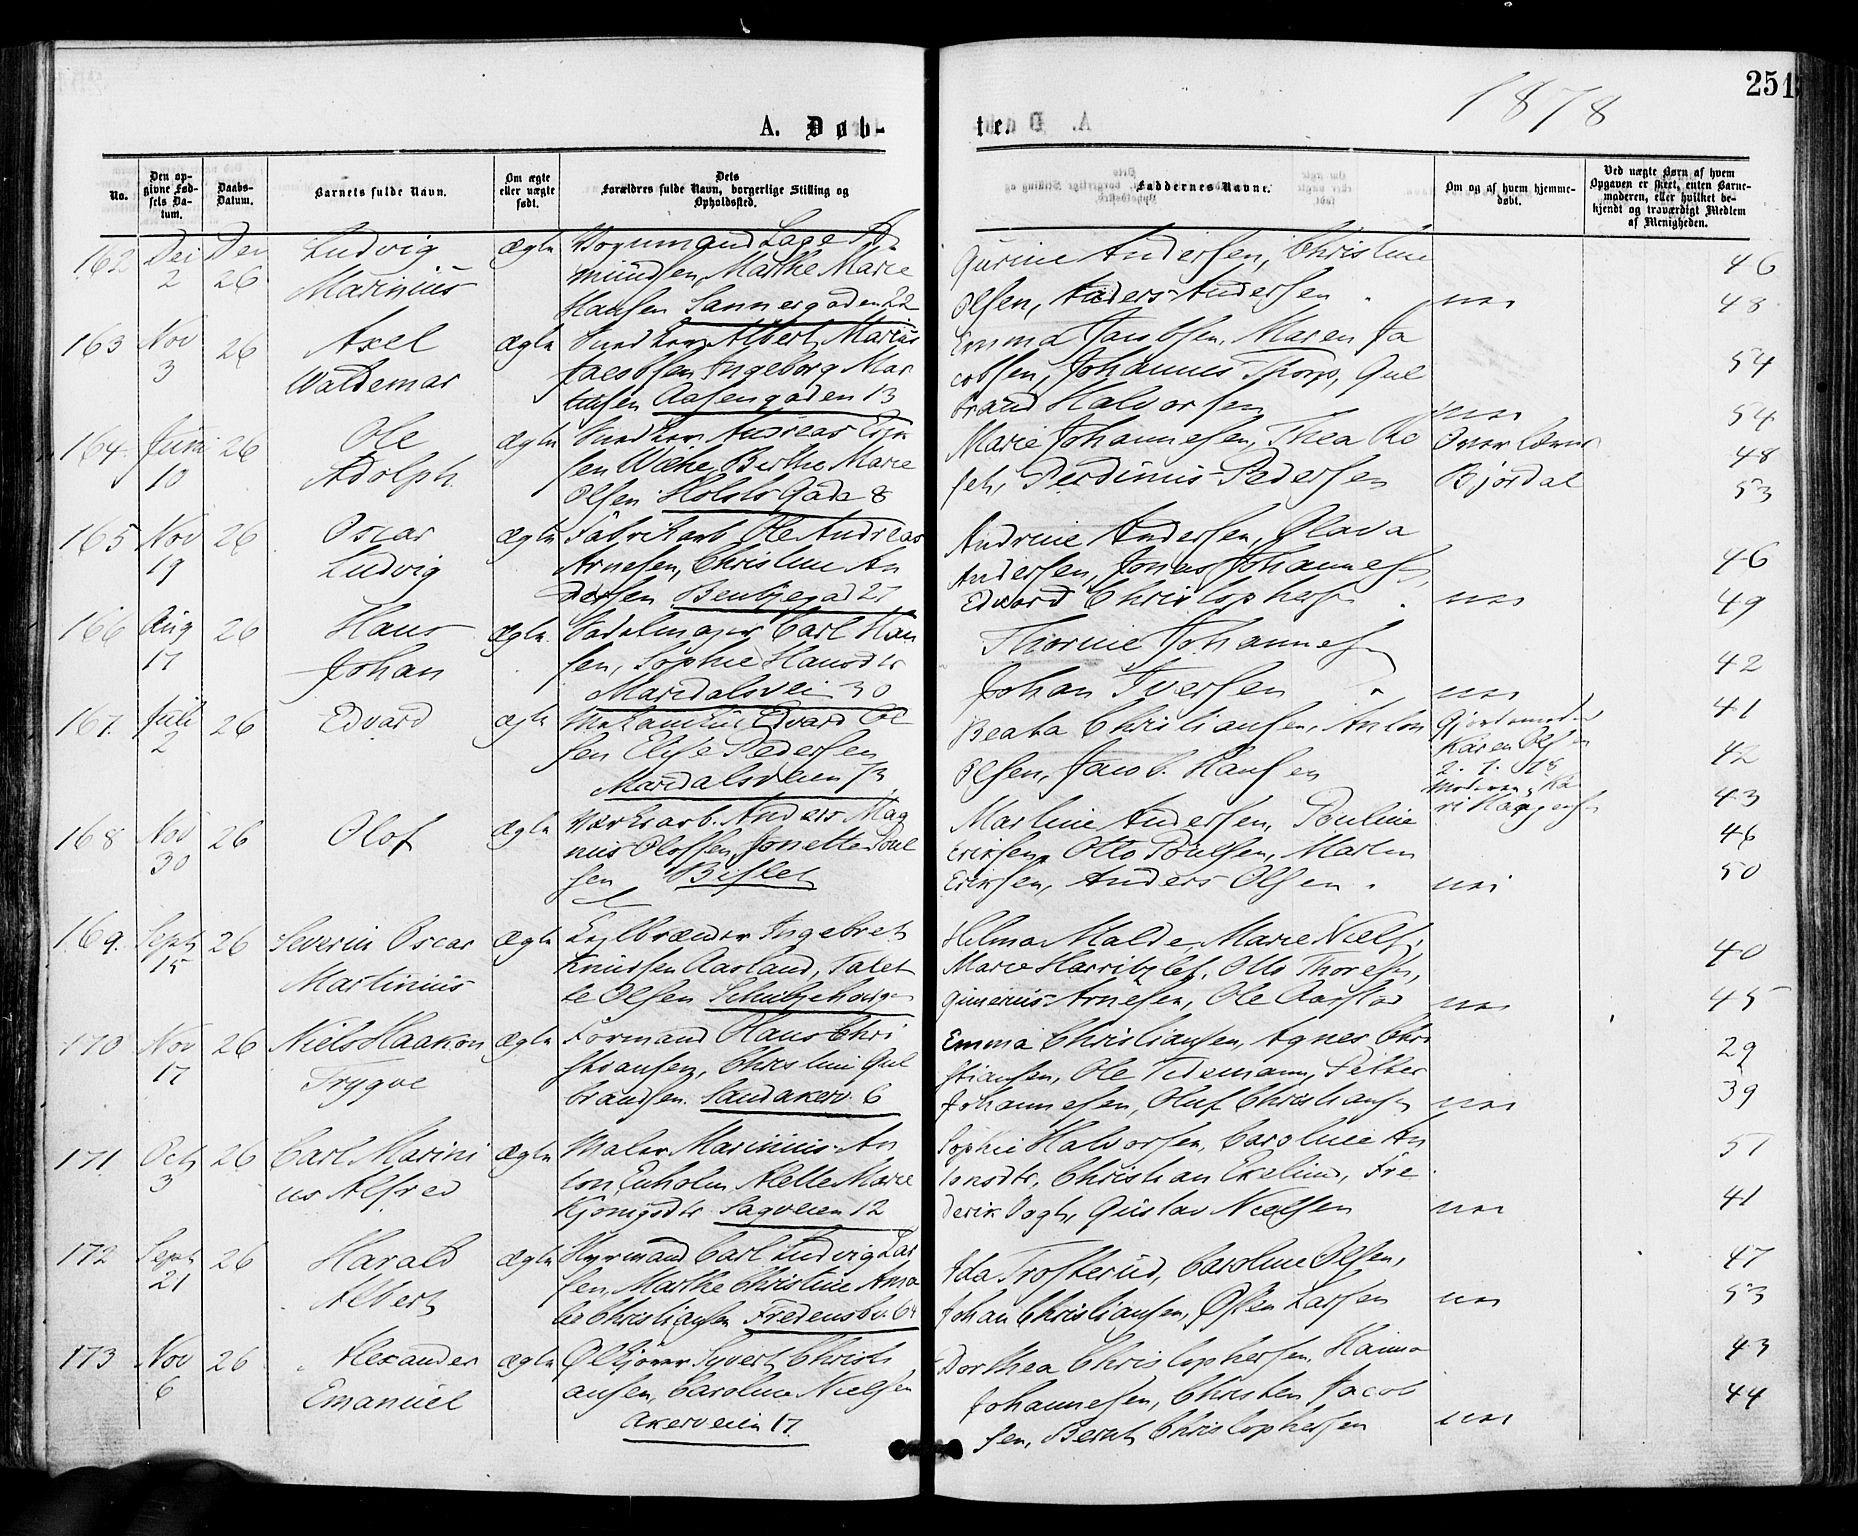 251
1878
A. Døb-
te.
No.
Den op-
givne Fød-
sels Da-
tum.
Daabs-
Datum.
Barnets fulde Navn.
Om ægte
eller uægte
født.
Dets
Forældres fulde Navn, borgerlige Stilling og
Opholdssted.
Faddernes Navne.
Om og af hvem hjemme-
døbt.
Ved uægte Børn af hvem
Opgaven er skeet, enten Barne-
moderen, eller hvilket be-
kjendt og troværdigt Medlem
af Menigheden.
162 Dec 2 Dec 26 Ludvig
Marinius
ægte
Vognmand Lage
mundsen, Marthe Marie
Hansen Sannergaden 22
Gurine Andersen, Christine
Olsen, Anders Andersen
nei
46
48
163 Nov 3 26 Axel
Waldemar
ægte
Snedker Albert Marius
Jacobsen Ingeborg Mar
tinsen Aasengaden 13
Emma Jacobsen, Maren Ja
cobsen, Johannes Thorp, Gul
brand Halvorsen
nei
54
54
164 Juni 10 26 Ole
Adolph
ægte
Snedker Andreas Erik
sen Berthe Marie
Olsen Holsts Gade 8
Marie Johannesen, Thea
Ferdinius Pedersen
Bjørdal
48
53
165 Nov 19 26 Oscar
Ludvig
ægte
Fabrikarb Ole Andreas
Arnesen, Christine An
dersen Benbjegad 27
Andrine Andersen, Olava
Andersen, Jonas Johannesen
Edvard Christophersen
nei
46
49
166 Aug 17 26 Hans
Johan
ægte
Sadelmager Carl Han
sen, Sophie Hansdtr
Maridalsvei 30
Thorine Johannesen
Johan Iversen
nei
42
41
167. Juli 2 26 Edvard
ægte
Edvard Ol
sen Elise Pedersen
Maridalsveien 73
Beata Christiansen, Anton
Olsen, Jacob Hansen
Gjordemoder
Karen Olsen
42
43
168 Nov 30 26 Olof
ægte
Værksarb. Anders Mag
nus Olofsen, Jonette Poul
sen Bislet
Martine Andersen, Pouline
Eriksen, Otto Poulsen, Martin
Eriksen, Anders Olsen
nei
46
50
169. Sept 15 26 Severin Oscar
Martinius
ægte
Teglbrænder Ingebret
Knudsen Aasland, Talet
te Olsen
Hilma Malde, Marie Niels.
Marie Otto Thoresen,
Gunerius Arnesen, Ole Aasland
nei
40
45
170 Nov 17 26 Niels Haakon
Trygve
ægte
Formand Hans Chri
stiansen, Christine Gul
brandsen. Sandakerv. 6
Emma Christiansen, Agnes Chri
stiansen, Ole Tidemann, Petter
Johannesen, Oluf Christiansen
nei
29
39
171 Oct 3 26 Carl Marini
us Alfred
ægte
Maler Marinius An
ton Enholm Alette Marie
Kjønigsdtr Sagveien 12
Sophie Halvorsen, Caroline An
tonsdtr, Christian Exelius, Fre
derik Vogt, Gustav Nielsen
nei
51
41
172 Sept 21 26 Harald
Albert
ægte
Hyrmand Carl Ludvig Lar
sen, Marthe Christine Ama
lie Christiansen Fredensbv. 64
Ida Trosterud, Caroline Olsen,
Johan Christiansen, Østen Larsen
nei
47
53
173 Nov 6 26 Alexander
Emanuel
ægte
Ølkjører Syvert Christi
ansen, Caroline Nielsen
Akerveien 17.
Dorthea Christophersen, Hanna
Johannesen, Christen Jacob
sen, Bernt Christophersen
nei
43
44